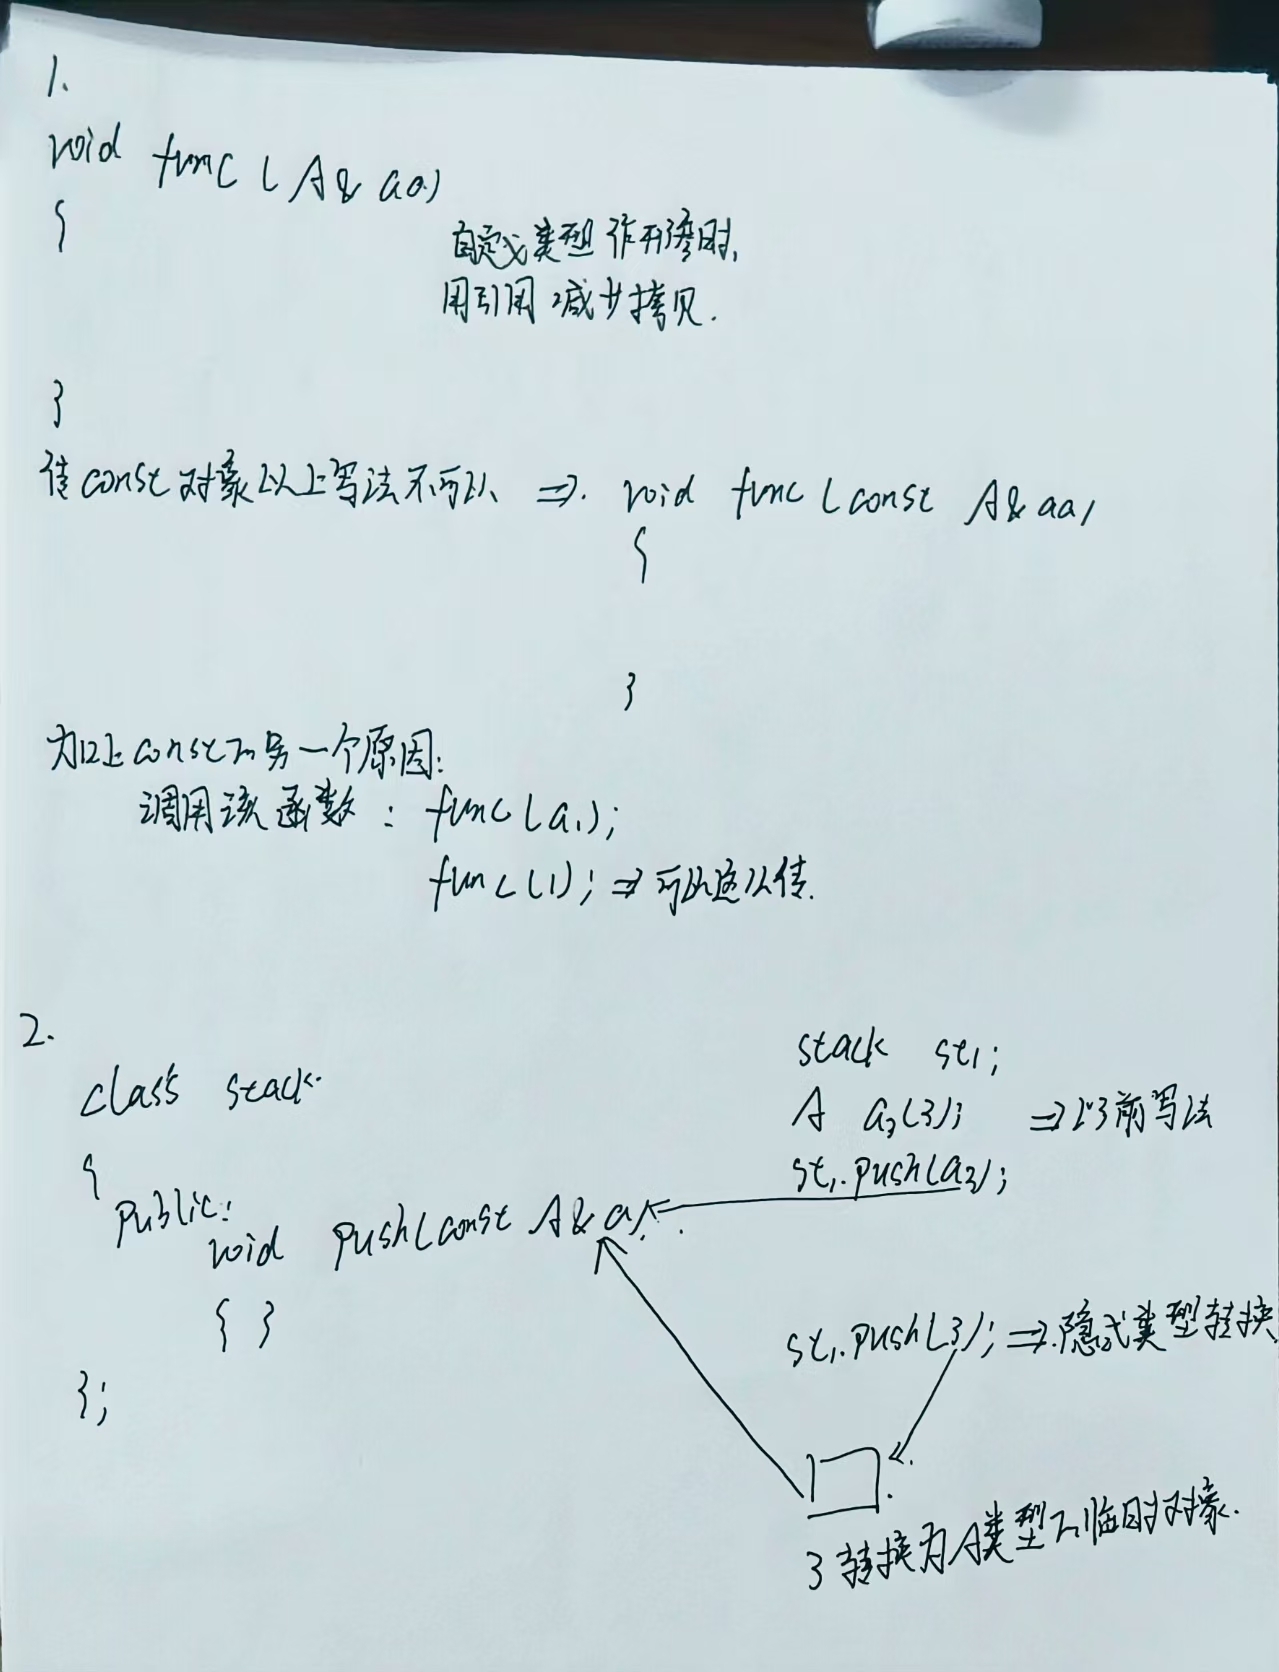 1.
void func (A& aa)
{
自定义类型作形参时,
用引用减少拷贝.
}
传const对象以上写法不可以 => void func (const A& aa)
{
}
加上const的另一个原因:
调用该函数: func(a1);
func(1); => 可以这么传.
2.
class stack
{
public:
void push(const A& a)
{ }
};
stack st1;
A a3(3); => 以前写法
st1.push(a3);
st1.push(3); => 隐式类型转换
3转换为A类型的临时对象.